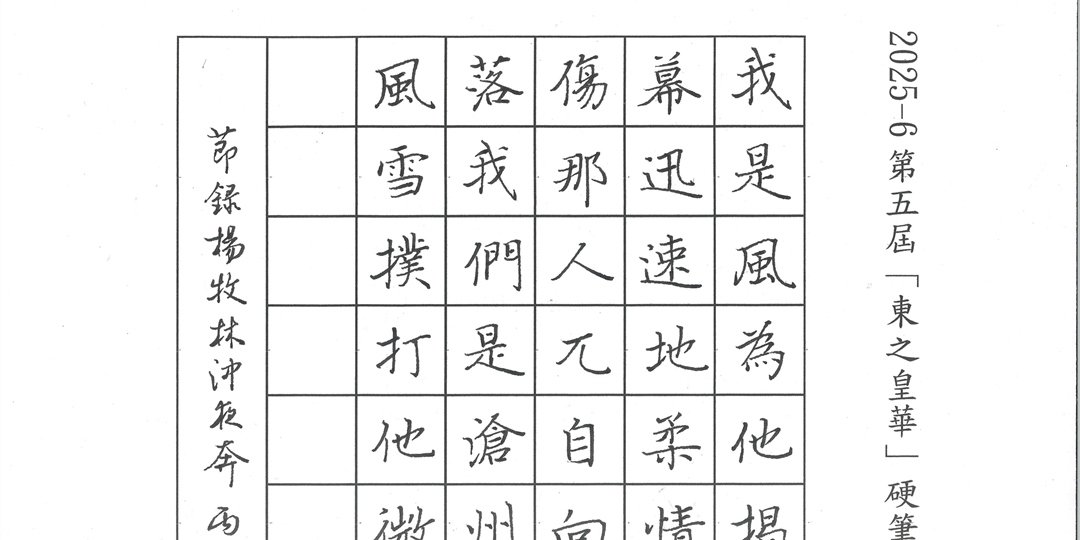 2025-6 第五屆「東之皇華」硬筆
我是風為他揭
幕迅速地柔情
傷那人兀自向
落我們是滄州
風雪撲打他微
節錄楊牧林沖夜奔